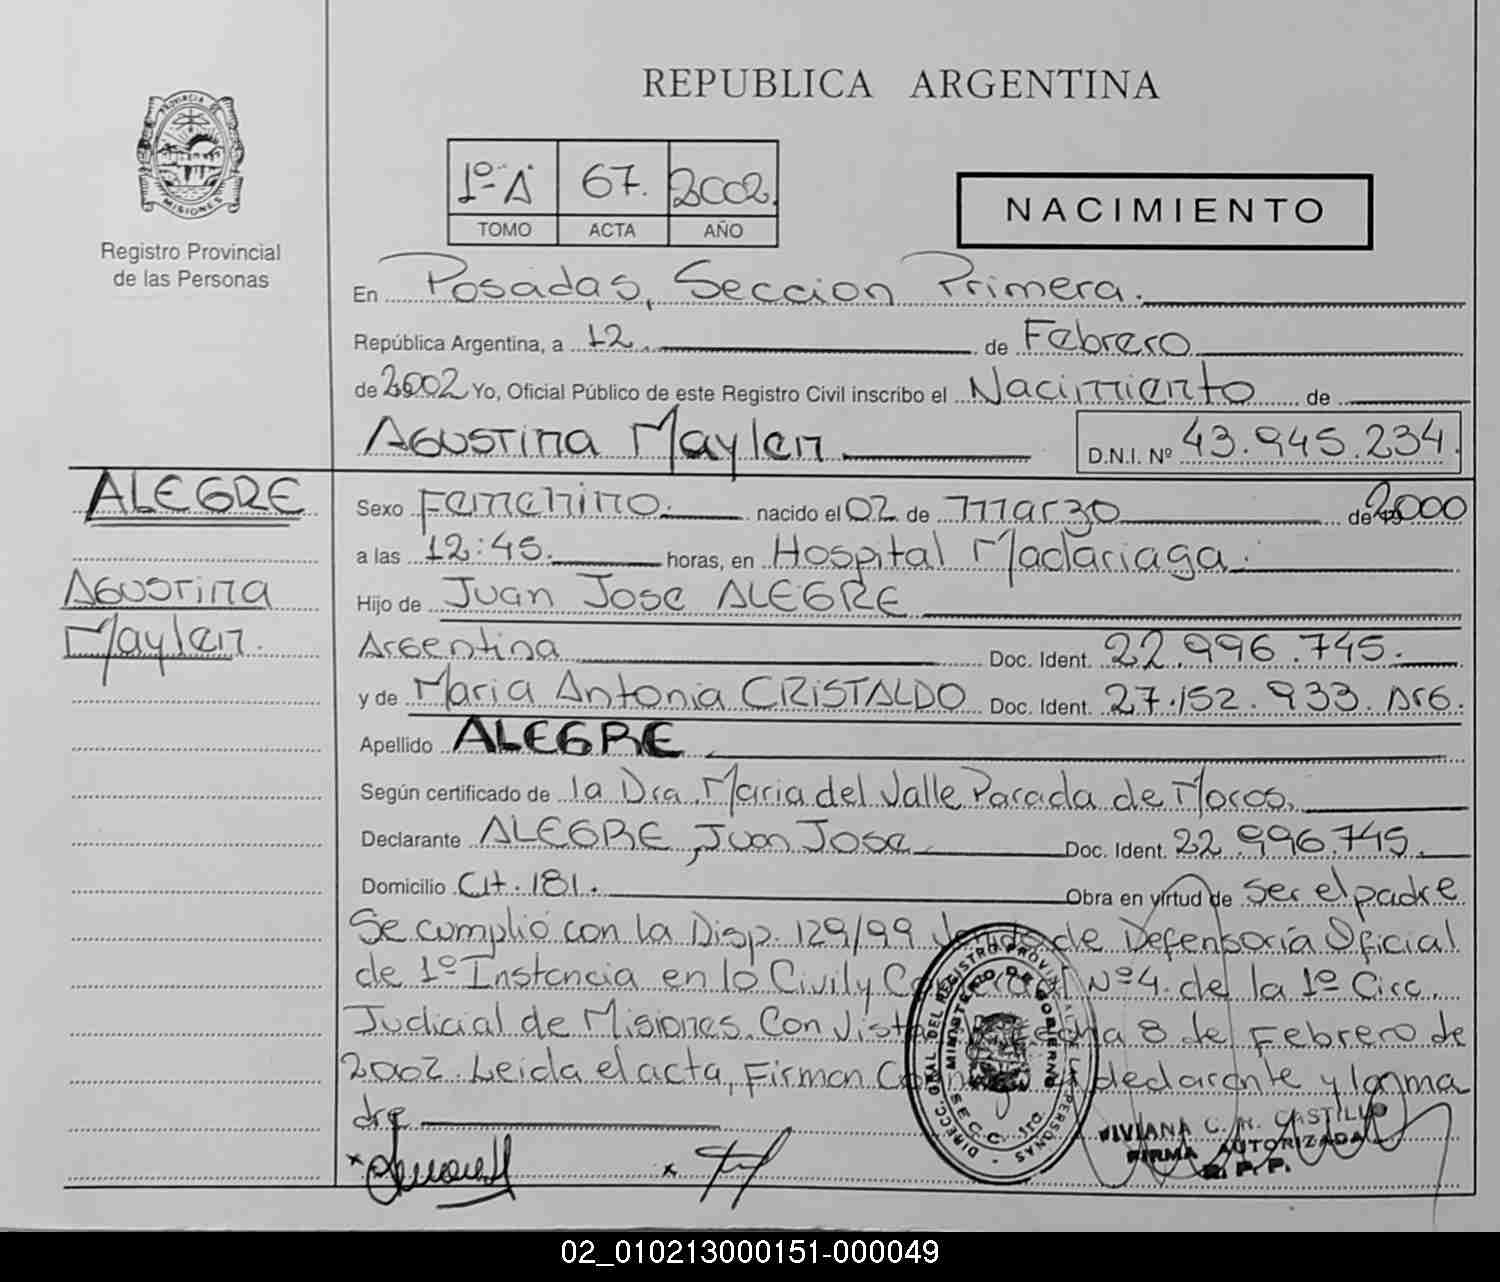 REPUBLICA ARGENTINA
PROVINCIA DE
MISIONES
Registro Provincial
de las Personas
1º "A" 67. 2002.
TOMO ACTA AÑO
NACIMIENTO
En Posadas, Seccion Primera.
República Argentina, a 12 de Febrero
de 2002 Yo, Oficial Público de este Registro Civil inscribo el Nacimiento de
Agustina Maylen D.N.I. Nº 43.945.234.
ALEGRE
Agustina
Maylen.
Sexo Femenino. nacido el 02 de marzo de 2000
a las 12:45. horas, en Hospital Madariaga.
Hijo de Juan Jose ALEGRE
Argentina Doc. Ident. 22.996.745.
y de Maria Antonia CRISTALDO Doc. Ident. 27.152.933. Arg.
Apellido ALEGRE
Según certificado de la Dra. Maria del Valle Parada de Moros.
Declarante ALEGRE, Juan Jose Doc. Ident. 22.996.745.
Domicilio CH. 181. Obra en virtud de ser el padre
Se cumplió con la Disp. 129/99 de Defensoría Oficial
de 1º Instancia en lo Civil y Nº 4. de la 1º Circ.
Judicial de Misiones. Con vista fecha 8 de Febrero de
2002. Leida el acta, Firman declarante y la ma
dre
DIRECC. GRAL. DEL REGISTRO PROVINCIAL DE LAS PERSONAS
MINISTERIO DE GOBIERNO
SECC. 1ro.
VIVIANA C. N. CASTILLO
FIRMA AUTORIZADA
R. P. P.
02_010213000151-000049